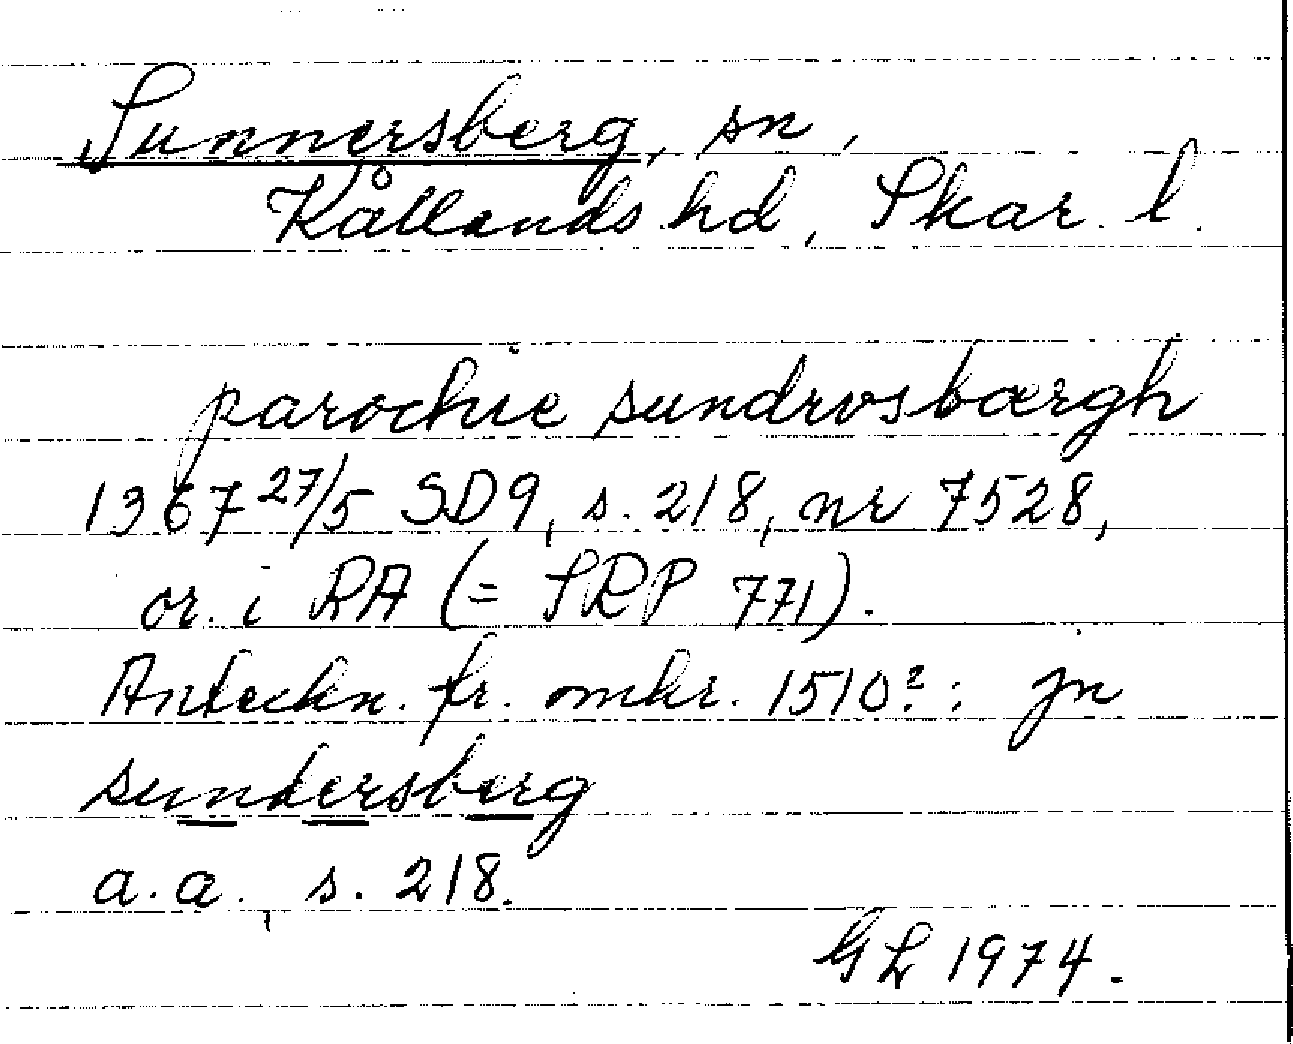 Sunnersberg, sn,
Kållands hd, Skar. l.
parochie sundrosbærgh
1367 27/5 SD9, s. 218, nr 7528,
or. i RA (= SRP 771).
Anteckn. fr. omkr. 1510?: jn
sundersberg
a.a., s. 218.
GL 1974.